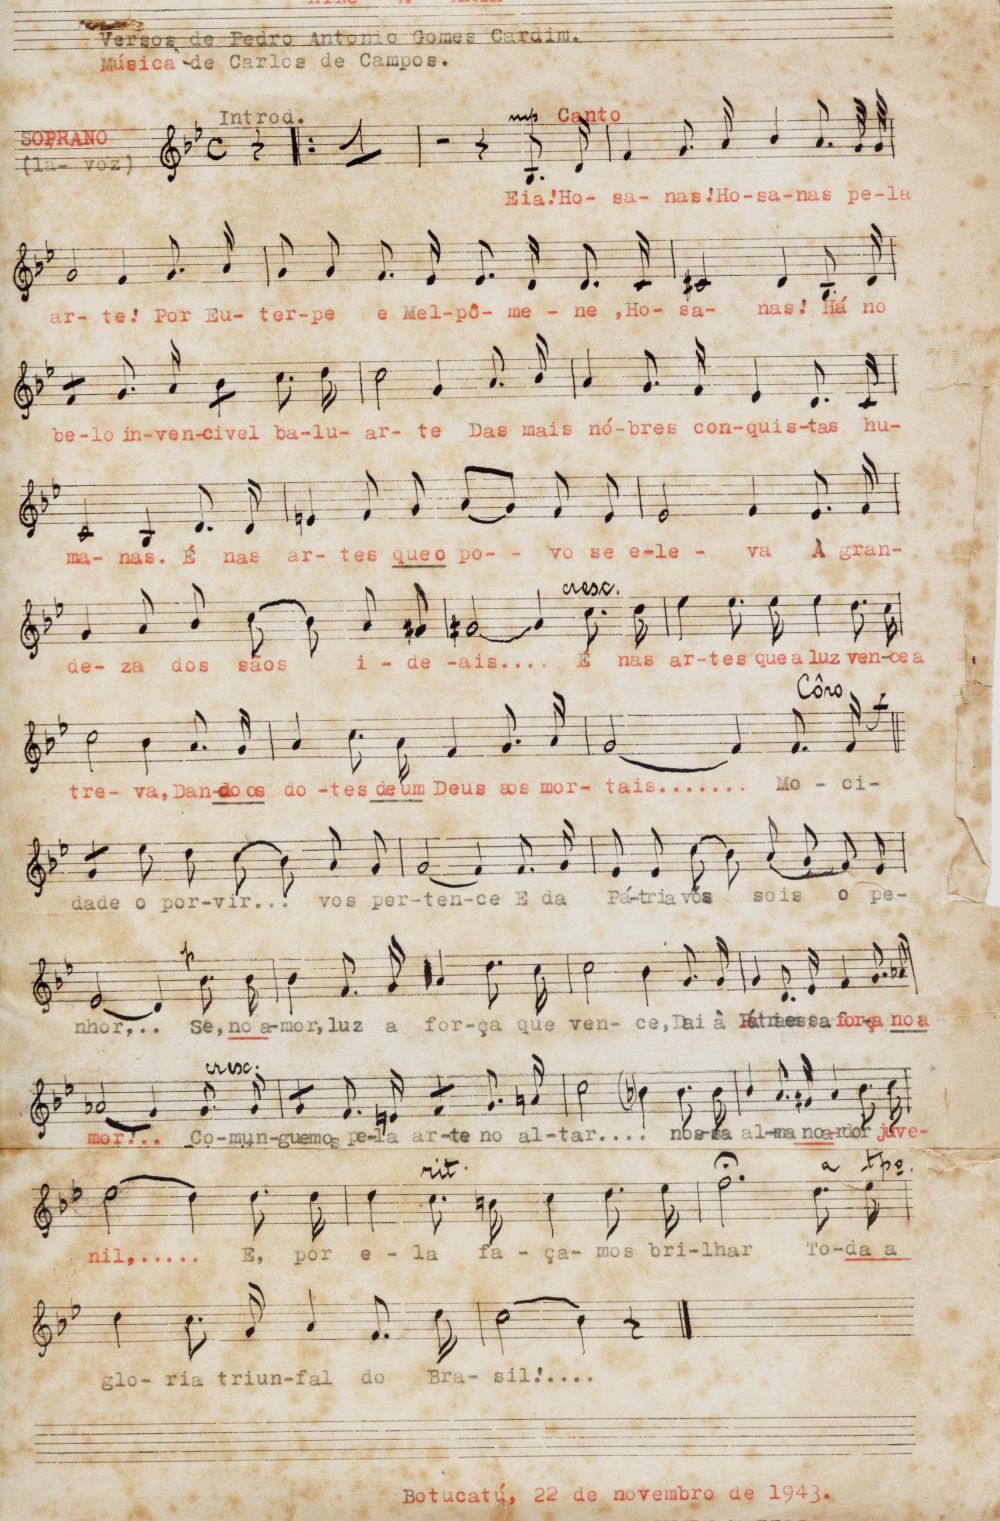 Versos de Pedro Antonio Gomes Cardim.
Música de Carlos de Campos.
Introd. mp Canto
SOPRANO
(1a- voz)
Eia!Ho- sa- nas!Ho-sa-nas pe-la
ar- te! Por Eu- ter-pe e Mel-pô- me - ne ,Ho- sa- nas! Há no
be-lo in-ven-civel ba-lu- ar- te Das mais nó-bres con-quis-tas hu-
ma- nas. É nas ar- tes que o po- - vo se e-le - va A gran-
cresc.
de- za dos sãos i - de -ais.... E nas ar-tes que a luz ven-ce a
Côro f
tre- va,Dan-do os do -tes de um Deus aos mor- tais....... Mo - ci-
dade o por-vir... vos per-ten-ce E da Pá-tria vós sois o pe-
p
nhor,.. Se,no a-mor,luz a for-ça que ven- ce,Dai à Pátria essa for-ça no a
cresc.
mor... Co-mun-guemos pe-la ar-te no al-tar.... nos-sa al-ma no ardor juve-
rit. a tpo.
nil,..... E, por e - la fa - ça- mos bri-lhar To-da a
glo- ria triun-fal do Bra- sil!....
Botucatú, 22 de novembro de 1943.